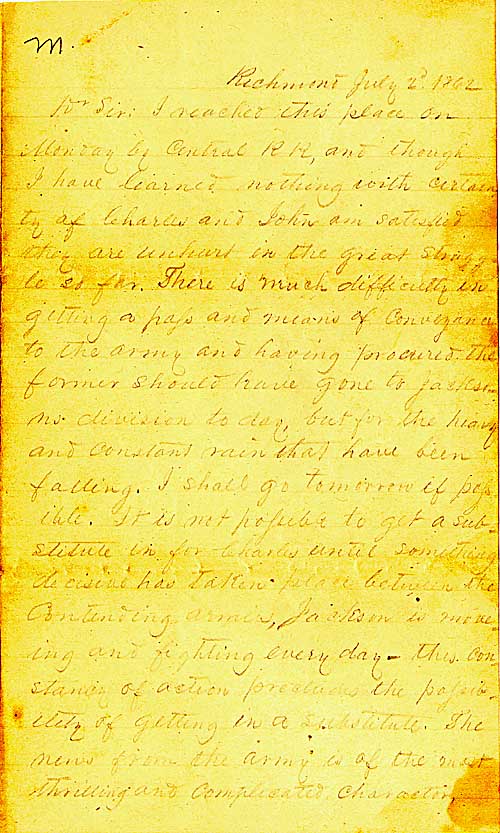 M.
Richmond July 2d 1862
Dr Sir: I reached this place on
Monday by Central R R, and though
I have learned nothing with certain
ty of Charles and John am satisfied
they are unhurt in the great strugg-
le so far. There is much difficulty in
getting a pass and means of conveyance
to the army and having procured the
former should have gone to Jackso-
ns division to day, but for the heavy
and constant rain that have been
falling. I shall go tomorrow if poss
ible. It is not possible to get a sub-
stitute in for Charles until something
decisive has taken place between the
Contending armies, Jackson is move-
ing and fighting every day - this con
stancy of action precludes the possib-
ility of getting in a substitute. The
news from the army is of the most
thrilling and complicated character,